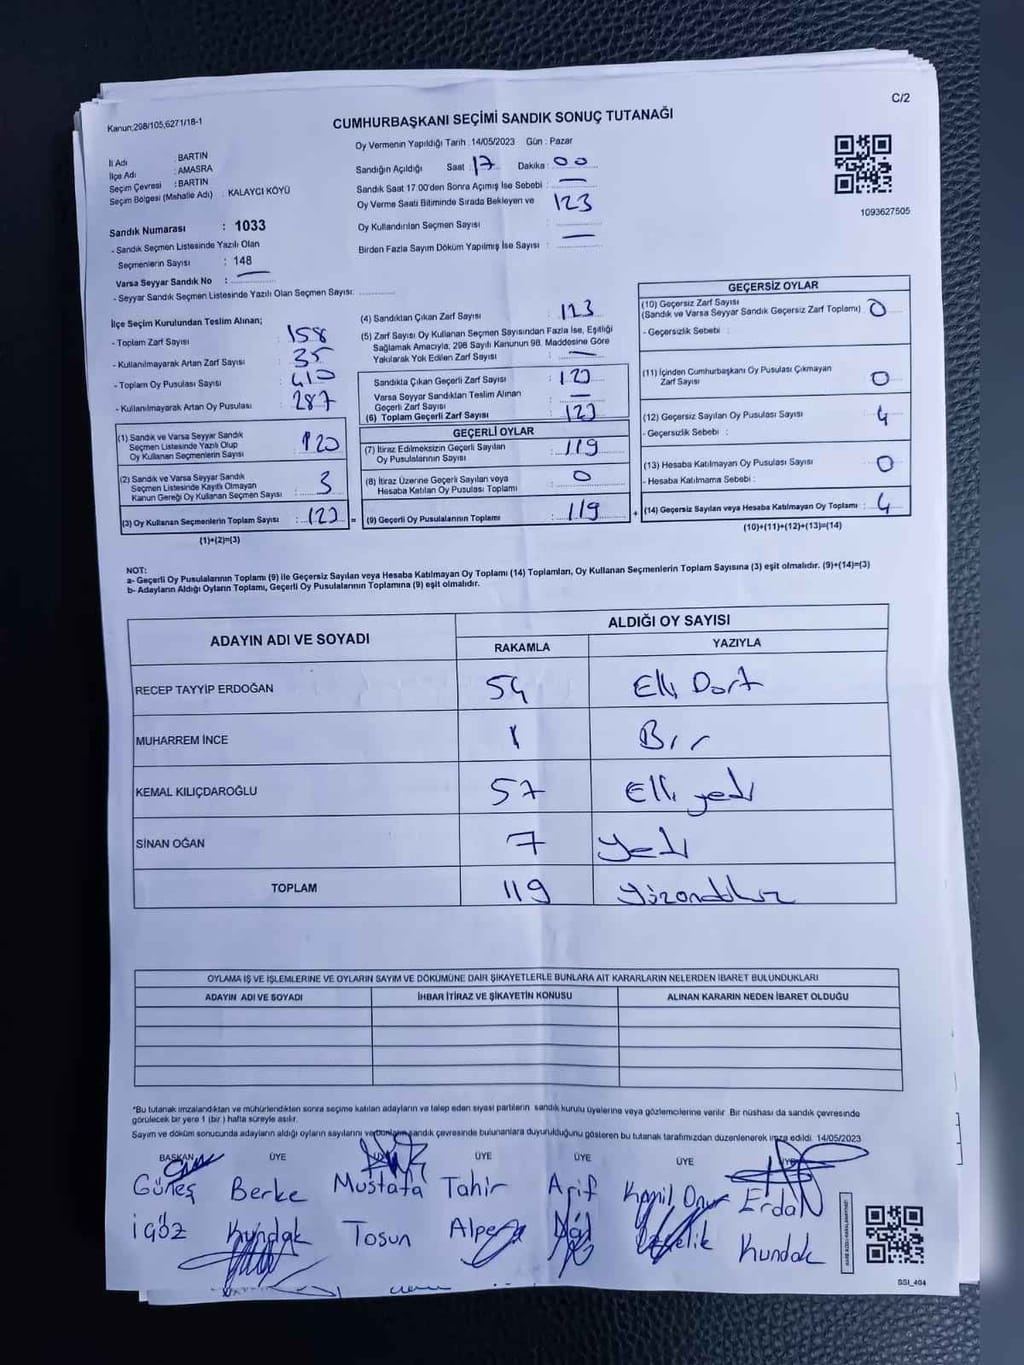 C/2
Kanun;298/105,6271/18-1
CUMHURBAŞKANI SEÇİMİ SANDIK SONUÇ TUTANAĞI
Oy Vermenin Yapıldığı Tarih :14/05/2023 Gün : Pazar
İl Adı : BARTIN
İlçe Adı : AMASRA
Seçim Çevresi : BARTIN
Seçim Bölgesi (Mahalle Adı) : KALAYCI KÖYÜ
Sandığın Açıldığı Saat : 17 Dakika : 00
Sandık Saat 17:00'den Sonra Açımış İse Sebebi : —
Oy Verme Saati Bitiminde Sırada Bekleyen ve 123
Oy Kullandırılan Seçmen Sayısı :
Birden Fazla Sayım Döküm Yapılmış İse Sayısı : —
1093627505
Sandık Numarası : 1033
- Sandık Seçmen Listesinde Yazılı Olan
Seçmenlerin Sayısı : 148
Varsa Seyyar Sandık No : —
- Seyyar Sandık Seçmen Listesinde Yazılı Olan Seçmen Sayısı:
İlçe Seçim Kurulundan Teslim Alınan;
- Toplam Zarf Sayısı : 158
- Kullanılmayarak Artan Zarf Sayısı : 35
- Toplam Oy Pusulası Sayısı : 410
- Kullanılmayarak Artan Oy Pusulası : 287
(1) Sandık ve Varsa Seyyar Sandık
Seçmen Listesinde Yazılı Olup
Oy Kullanan Seçmenlerin Sayısı : 120
(2) Sandık ve Varsa Seyyar Sandık
Seçmen Listesinde Kayıtlı Olmayan
Kanun Gereği Oy Kullanan Seçmen Sayısı : 3
(3) Oy Kullanan Seçmenlerin Toplam Sayısı : 123 =
(1)+(2)=(3)
(4) Sandıktan Çıkan Zarf Sayısı : 123
(5) Zarf Sayısı Oy Kullanan Seçmen Sayısından Fazla İse, Eşitliği
Sağlamak Amacıyla, 298 Sayılı Kanunun 98. Maddesine Göre
Yakılarak Yok Edilen Zarf Sayısı : —
Sandıkta Çıkan Geçerli Zarf Sayısı : 123
Varsa Seyyar Sandıktan Teslim Alınan
Geçerli Zarf Sayısı : —
(6) Toplam Geçerli Zarf Sayısı : 123
GEÇERLİ OYLAR
(7) İtiraz Edilmeksizin Geçerli Sayılan
Oy Pusulalarının Sayısı : 119
(8) İtiraz Üzerine Geçerli Sayılan veya
Hesaba Katılan Oy Pusulası Toplamı : 0
(9) Geçerli Oy Pusulalarının Toplamı : 119 +
GEÇERSİZ OYLAR
(10) Geçersiz Zarf Sayısı
(Sandık ve Varsa Seyyar Sandık Geçersiz Zarf Toplamı) : 0
- Geçersizlik Sebebi :
(11) İçinden Cumhurbaşkanı Oy Pusulası Çıkmayan
Zarf Sayısı : 0
(12) Geçersiz Sayılan Oy Pusulası Sayısı : 4
- Geçersizlik Sebebi :
(13) Hesaba Katılmayan Oy Pusulası Sayısı : 0
- Hesaba Katılmama Sebebi :
(14) Geçersiz Sayılan veya Hesaba Katılmayan Oy Toplamı : 4
(10)+(11)+(12)+(13)=(14)
NOT:
a- Geçerli Oy Pusulalarının Toplamı (9) ile Geçersiz Sayılan veya Hesaba Katılmayan Oy Toplamı (14) Toplamları, Oy Kullanan Seçmenlerin Toplam Sayısına (3) eşit olmalıdır. (9)+(14)=(3)
b- Adayların Aldığı Oyların Toplamı, Geçerli Oy Pusulalarının Toplamına (9) eşit olmalıdır.
ADAYIN ADI VE SOYADI ALDIĞI OY SAYISI
RAKAMLA YAZIYLA
RECEP TAYYİP ERDOĞAN 54 Elli Dort
MUHARREM İNCE 1 Bir
KEMAL KILIÇDAROĞLU 57 Elli yedi
SİNAN OĞAN 7 yedi
TOPLAM 119 yüzondokuz
OYLAMA İŞ VE İŞLEMLERİNE VE OYLARIN SAYIM VE DÖKÜMÜNE DAİR ŞİKAYETLERLE BUNLARA AİT KARARLARIN NELERDEN İBARET BULUNDUKLARI
ADAYIN ADI VE SOYADI İHBAR İTİRAZ VE ŞİKAYETİN KONUSU ALINAN KARARIN NEDEN İBARET OLDUĞU
*Bu tutanak imzalandıktan ve mühürlendikten sonra seçime katılan adayların ve talep eden siyasi partilerin sandık kurulu üyelerine veya gözlemcilerine verilir. Bir nüshası da sandık çevresinde
görülecek bir yere 1 (bir ) hafta süreyle asılır.
Sayım ve döküm sonucunda adayların aldığı oyların sayılarını sandık çevresinde bulunanlara duyurulduğunu gösteren bu tutanak tarafımızdan düzenlenerek imza edildi. 14/05/2023
BAŞKAN ÜYE ÜYE ÜYE ÜYE ÜYE ÜYE
Güneş Berke Mustafa Tahir Arif Kamil Onur Erdal
İgöz Kundak Tosun Kundak
SSI_404